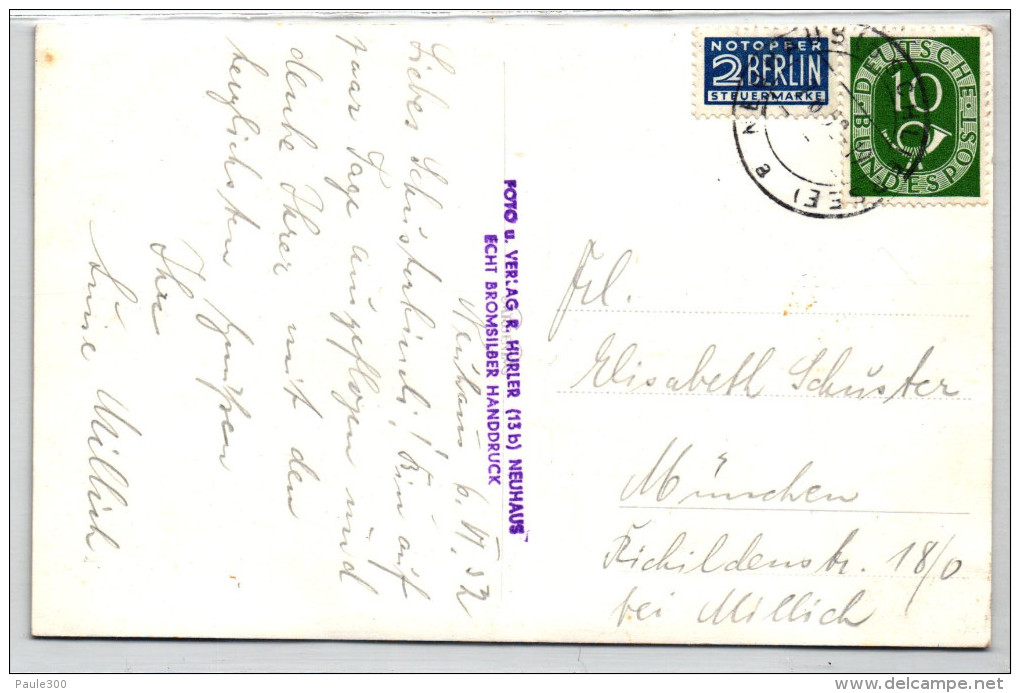 Neuhaus 6. VI. 52
Liebes Schusterlindi! Bin auf
paar Tage ausgeflogen und
denke Ihrer mit den
herzlichsten Grüßen
Ihre
Luise Millich.
FOTO u. VERLAG R. HURLER (13b) NEUHAUS
ECHT BROMSILBER HANDDRUCK
NOTOPFER
2 BERLIN
STEUERMARKE
DEUTSCHE BUNDESPOST
10
Frl.
Elisabeth Schuster
München
Richildenstr. 18/0
bei Millich
Paule300
delcampe.net